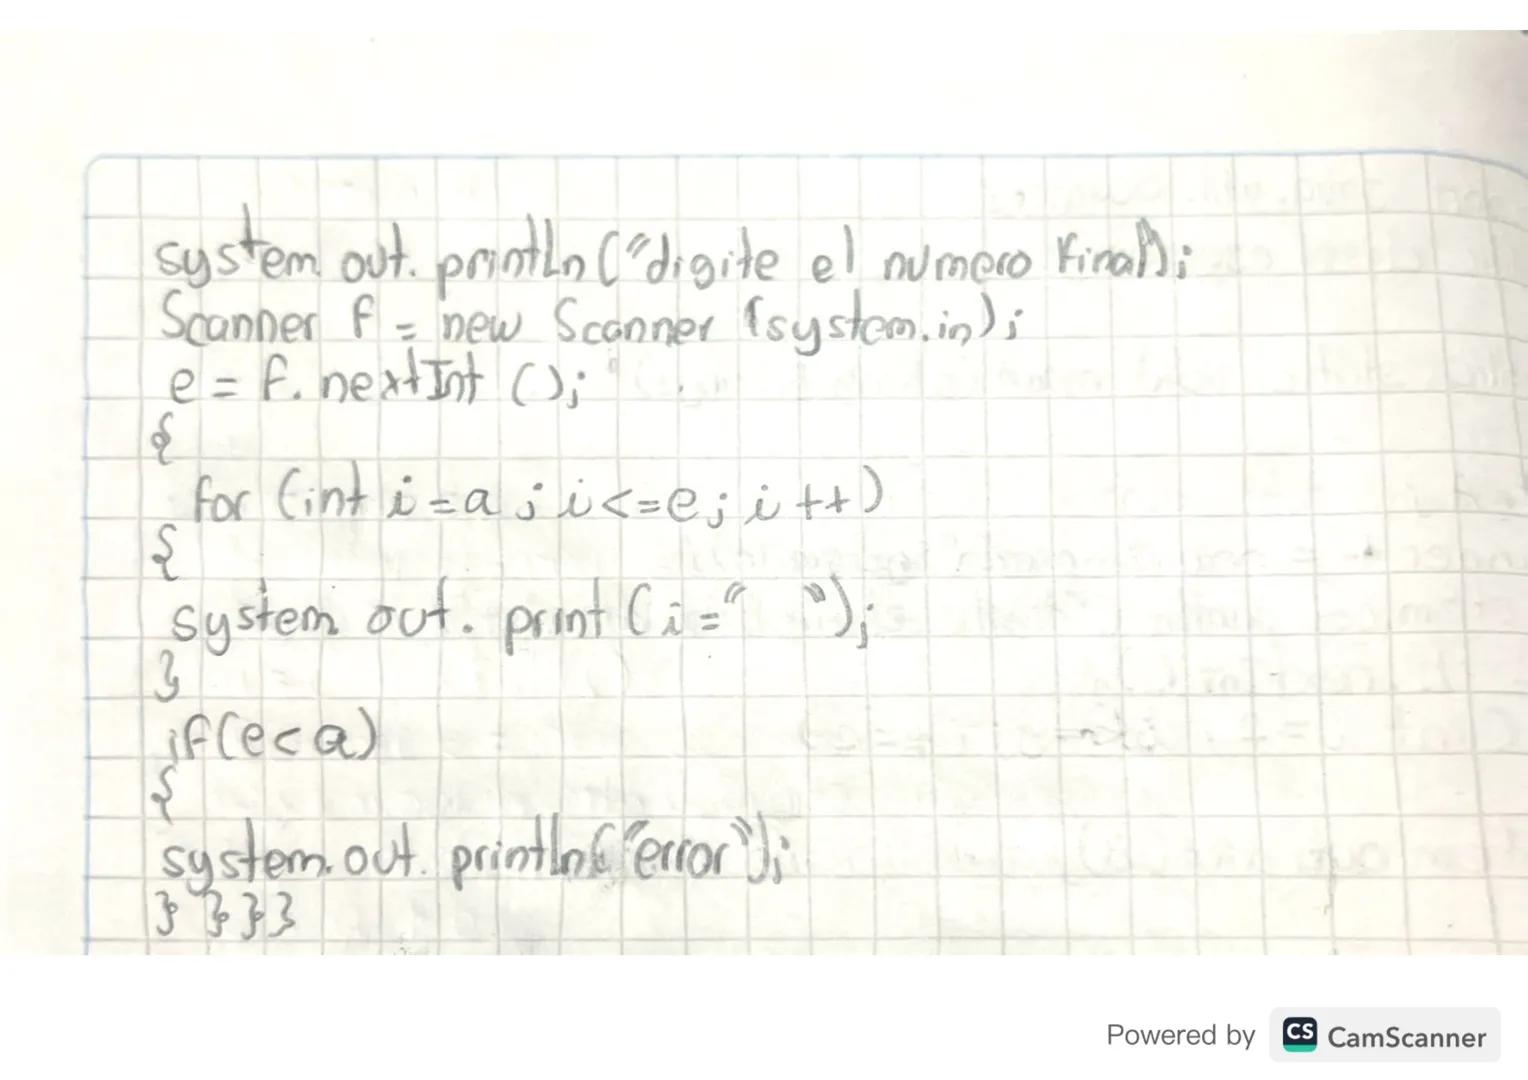 system out. println ("digite el numero final");
Scanner f = new Scanner (system.in);
e = f. nextInt ();
{
for (int i = a ; i <= e ; i ++)
{
system out. print ( i = "   ");
}
if (e < a)
{
system. out. println ("error");
} } } }
Powered by CS CamScanner